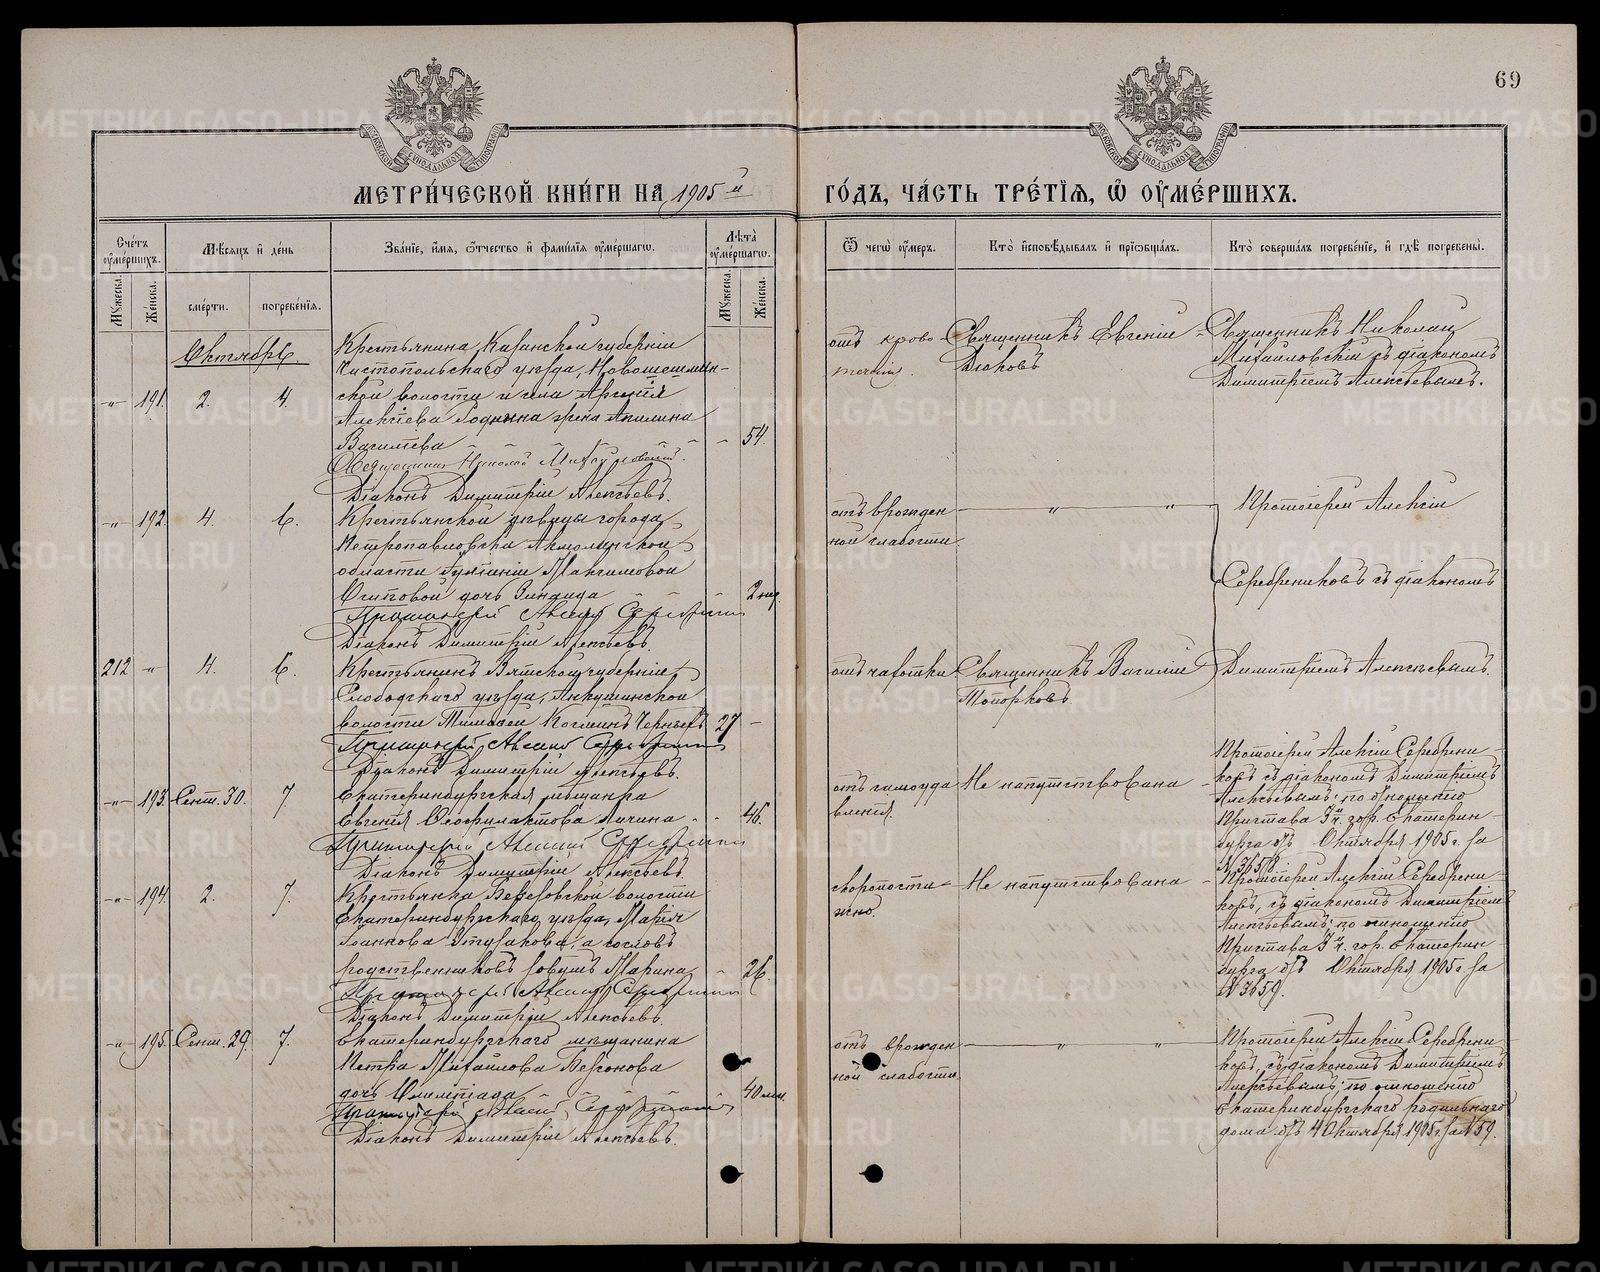 69
МОСКОВСКОЙ СѴНОДАЛЬНОЙ ТИПОГРАФІИ
МОСКОВСКОЙ СѴНОДАЛЬНОЙ ТИПОГРАФІИ
МЕТРИ́ЧЕСКОЙ КНИ́ГИ НА 1905й
ГО́ДЪ, ЧА́СТЬ ТРЕ́ТІѦ, Ѡ҆ ОУ҆МЕ́РШИХЪ.
Сче́тъ оу҆ме́ршихъ.
Мѣ́сяцъ и҆ де́нь
Зва́нїе, и҆́мя, ѻ҆́тчество и҆ фами́лїя оу҆ме́ршагѡ.
Лѣ́та оу҆ме́ршагѡ.
Ѿ чегѡ̀ оу҆́меръ.
Кто̀ и҆сповѣ́дывалъ и҆ прїѡбща́лъ.
Кто̀ соверша́лъ погребе́нїе, и҆ гдѣ̀ погребены̀.
Мꙋ́жеска.
Же́нска.
сме́рти.
погребе́нїя.
Мꙋ́жеска.
Же́нска.
Октябрь.
-"- 191. 2. 4.
Крестьянина Казанской губерніи
Чистопольскаго уѣзда, Новошешмин-
ской волости и села Арсенія
Алексѣева жена Акилина
Василіева - 54.
Священникъ Николай Михайловскій.
Діаконъ Димитрій Алексѣевъ.
отъ крово
теченія.
Священникъ Евгеній
Дьяковъ
Священникъ Николай
Михайловскій съ діакономъ
Димитріемъ Алексѣевымъ.
-"- 192. 4. 6.
Крестьянской дѣвицы города
Петропавловска Акмолинской
области Максимовой
Осиповой дочь Зинаида 2 нед.
Протоіерей Алексій Серебрениковъ
Діаконъ Димитрій Алексѣевъ.
отъ врожден
ной слабости.
" "
Протоіерей Алексій
Серебрениковъ съ діакономъ
212 -"- 4. 6.
Крестьянинъ Вятской губерніи
Слободскаго уѣзда,
волости Тимофей 27 -
Протоіерей Алексій Серебрениковъ
Діаконъ Димитрій Алексѣевъ.
отъ чахотки
Священникъ Василій
Топорковъ
Димитріемъ Алексѣевымъ.
-"- 193. Сент. 30. 7
Екатеринбургская мѣщанка
Евгенія Ѳеофилактова Лачина - - 46.
Протоіерей Алексій Серебрениковъ
Діаконъ Димитрій Алексѣевъ.
отъ самоуда
вленія.
Не напутствована
Протоіерей Алексій Серебрени-
ковъ съ діакономъ Димитріемъ
Алексѣевымъ; по отношенію
Пристава 3й ч. гор. Екатерин-
бурга отъ Октября 1905 г. за
№ 3658.
-"- 194. 2. 7.
Крестьянка Березовской волости
Екатеринбургскаго уѣзда, Марія
Іоаннова а со словъ
родственниковъ зовутъ Марина - 26.
Протоіерей Алексій Серебрениковъ
Діаконъ Димитрій Алексѣевъ.
скоропости-
жно.
Не напутствована
Протоіерей Алексій Серебрени-
ковъ, съ діакономъ Димитріемъ
Алексѣевымъ; по отношенію
Пристава 3й ч. гор. Екатерин-
бурга отъ Октября 1905 г. за
№ 3659.
-"- 195. Сент. 29. 7.
Екатеринбургскаго мѣщанина
Петра Михайлова Безсонова
дочь Олимпіада 40 мин.
Протоіерей Алексій Серебрениковъ
Діаконъ Димитрій Алексѣевъ.
отъ врожден
ной слабости.
" "
Протоіерей Алексій Серебрени-
ковъ, съ діакономъ Димитріемъ
Алексѣевымъ; по отношенію
Екатеринбургскаго родильнаго
дома отъ 4 Октября 1905 г. за № 59.
METRIKI.GASO-URAL.RU